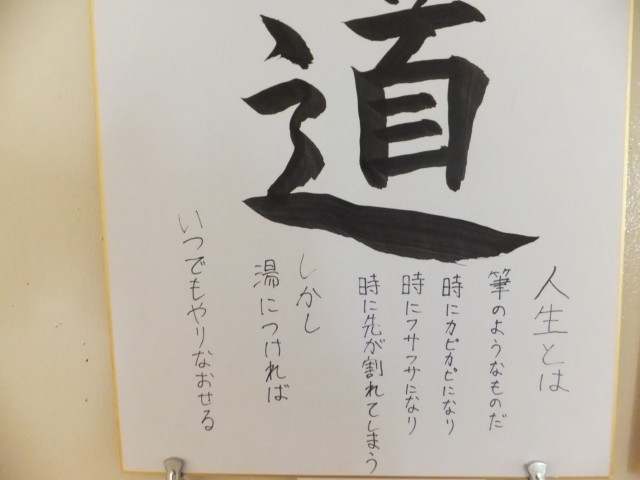 道
人生とは
筆のようなものだ
時にカピカピになり
時にフサフサになり
時に先が割れてしまう
しかし
湯につければ
いつでもやりなおせる